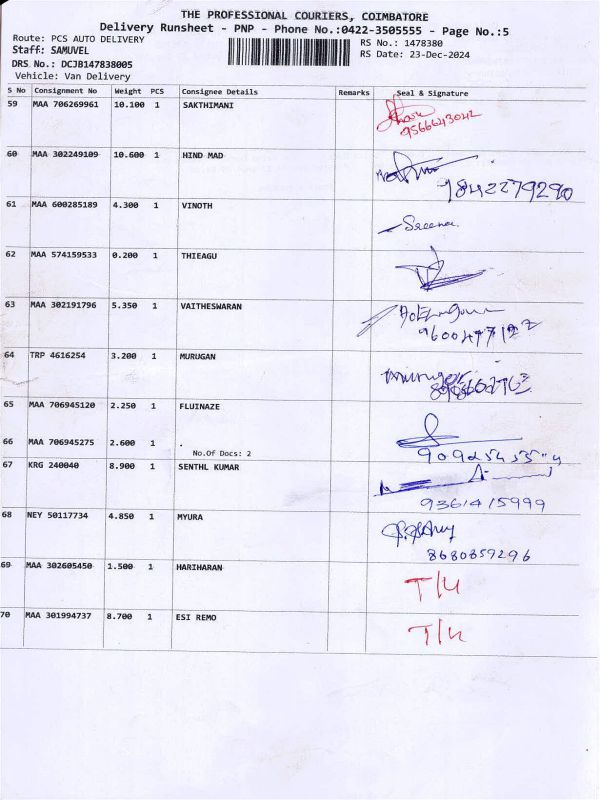 THE PROFESSIONAL COURIERS, COIMBATORE
Delivery Runsheet - PNP - Phone No.:0422-3505555 - Page No.:5
Route: PCS AUTO DELIVERY
RS No.: 1478380
Staff: SAMUVEL
RS Date: 23-Dec-2024
DRS No.: DCJB147838005
Vehicle: Van Delivery
S No Consignment No Weight PCS Consignee Details Remarks Seal & Signature
59 MAA 706269961 10.100 1 SAKTHIMANI
9566643042
60 MAA 302249109 10.600 1 HIND MAD
9842279290
61 MAA 600285189 4.300 1 VINOTH
62 MAA 574159533 0.200 1 THIEAGU
63 MAA 302191796 5.350 1 VAITHESWARAN
64 TRP 4616254 3.200 1 MURUGAN
65 MAA 706945120 2.250 1 FLUINAZE
66 MAA 706945275 2.600 1 .
No.Of Docs: 2
67 KRG 240040 8.900 1 SENTHL KUMAR
9361415999
68 NEY 50117734 4.850 1 MYURA
8680859296
69 MAA 302605450 1.500 1 HARIHARAN
T/U
70 MAA 301994737 8.700 1 ESI REMO
T/U